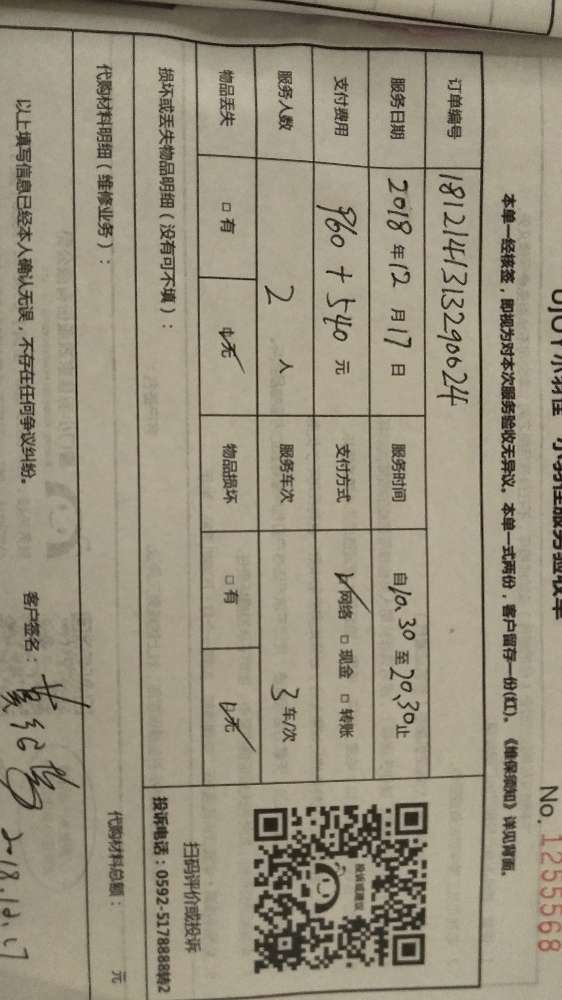 UJOY小羽佳 小羽佳服务验收单
No. 1255568
本单一经核签，即视为对本次服务验收无异议。本单一式两份，客户留存一份(红)。《维保须知》详见背面。
订单编号 1812141313290624
服务日期 2018 年 12 月 17 日 服务时间 自 10.30 至 20.30 止
支付费用 960 + 540 元 支付方式 ☑ 网络 □ 现金 □ 转账
服务人数 2 人 服务车次 3 车/次
物品丢失 □ 有 ☑ 无 物品损坏 □ 有 ☑ 无
投诉或建议
扫码评价或投诉
投诉电话：0592-5178888转2
损坏或丢失物品明细（没有可不填）：
代购材料明细（维修业务）： 代购材料总额： 元
以上填写信息已经本人确认无误，不存在任何争议纠纷。 客户签名： 2018.12.17